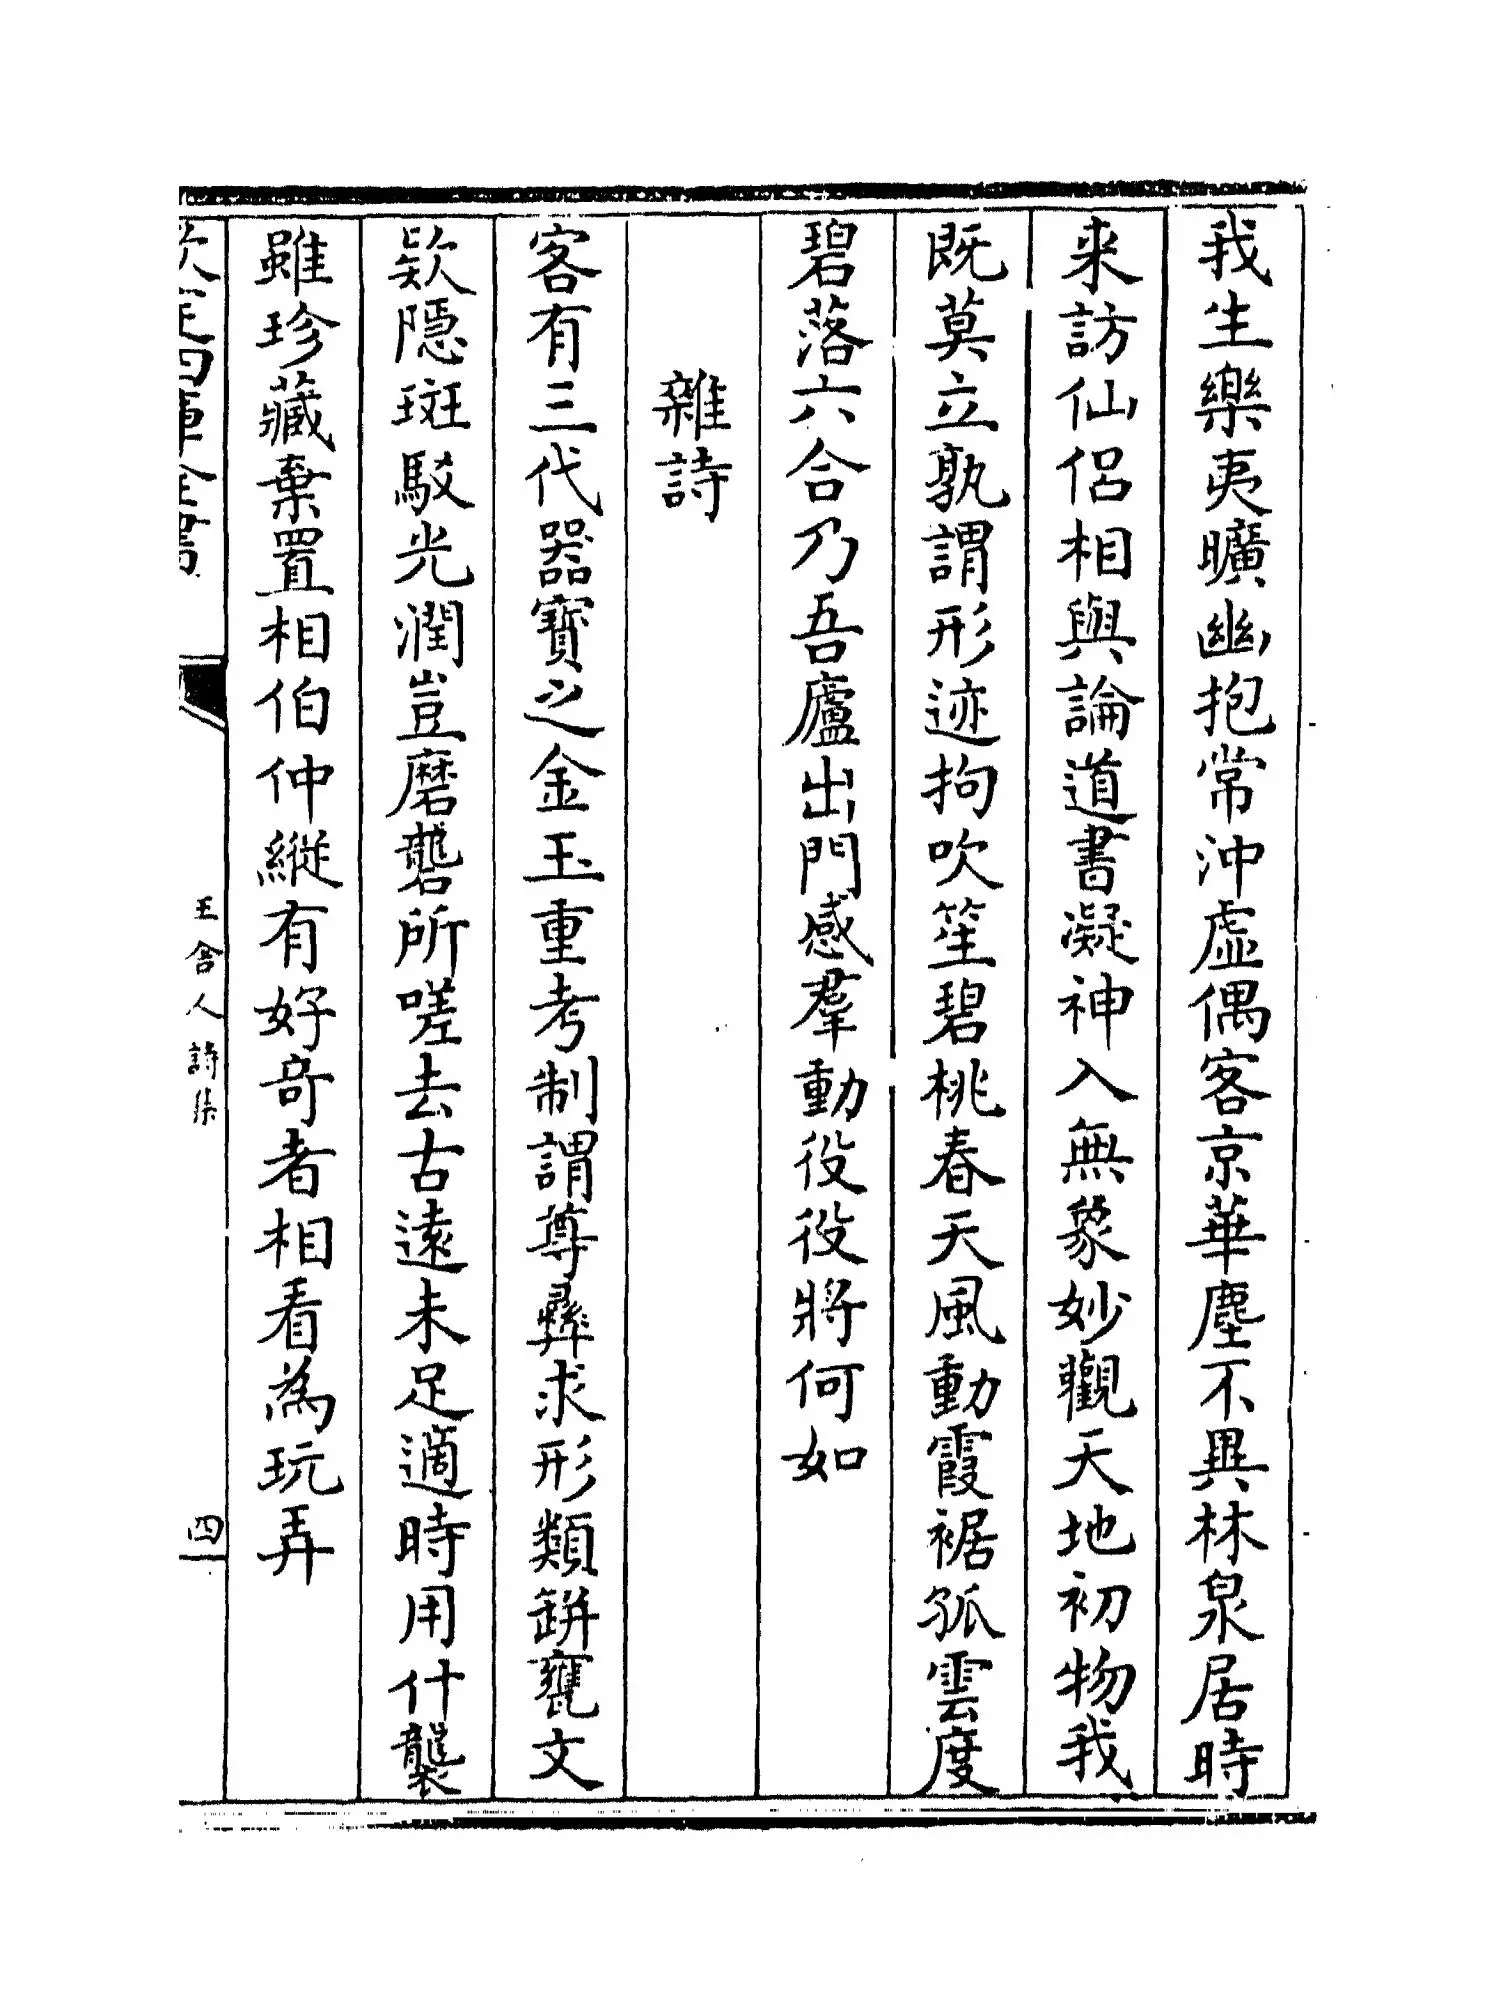 我生樂夷曠幽抱常沖虛偶客京華塵不異林泉居時
来訪仙侣相與論道書凝神入無象妙觀天地初物我
既莫立孰謂形迹拘吹笙碧桃春天風動霞裾孤雲度
碧落六合乃吾廬出門感羣動役役將何如
雜詩
客有三代器寶之金玉重考制謂尊彝求形類缾甕文
欵隱斑駁光潤豈磨礱所嗟去古遠未足適時用什襲
雖珍藏棄置相伯仲縱有好竒者相看為玩弄
欽定四庫全書
王舍人詩集
四